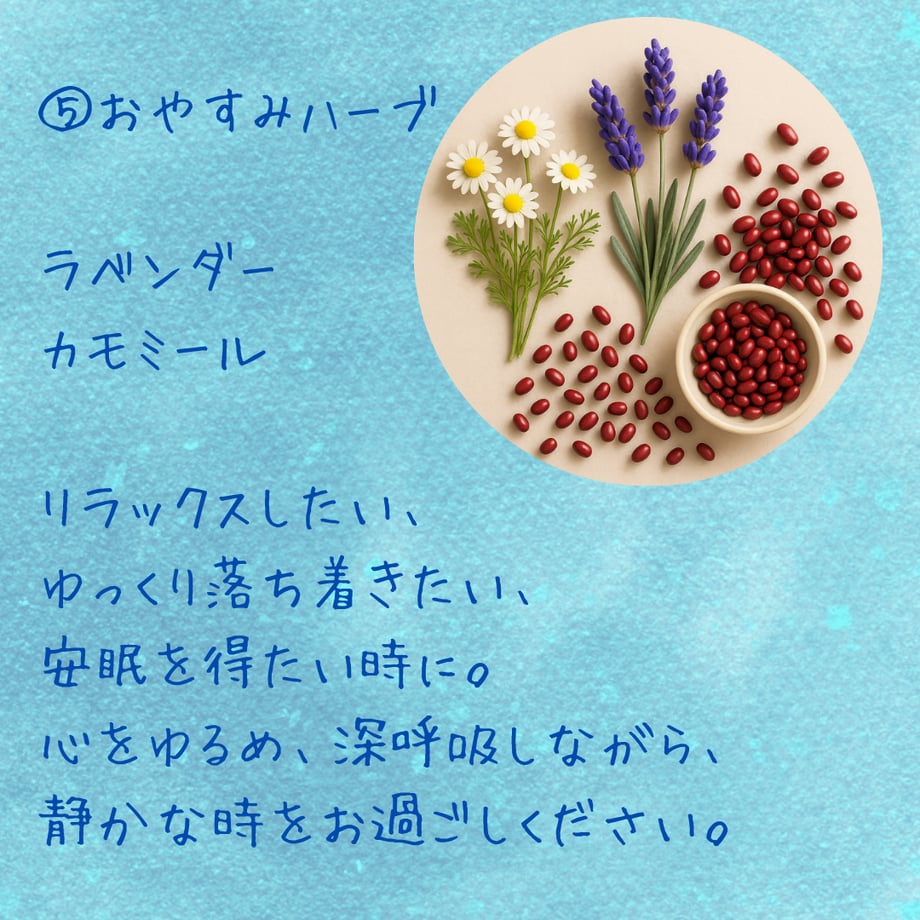 ⑤おやすみハーブ
ラベンダー
カモミール
リラックスしたい、
ゆっくり落ち着きたい、
安眠を得たい時に。
心をゆるめ、深呼吸しながら、
静かな時をお過ごしください。